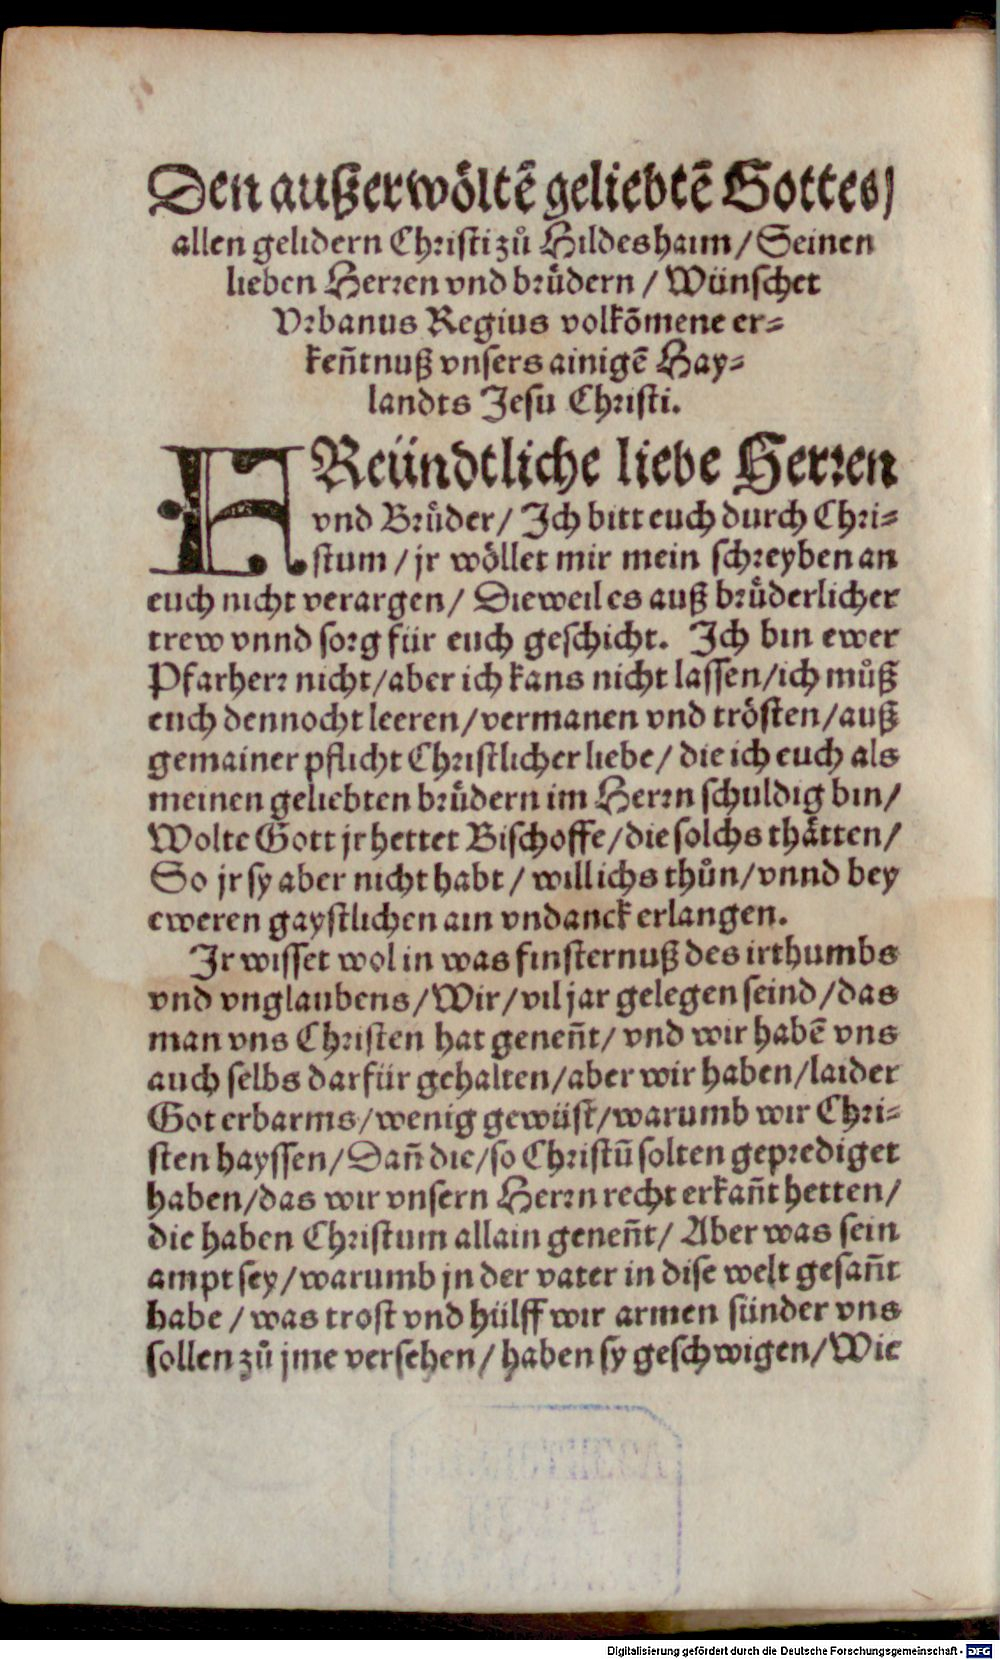 Den außerwöltē geliebtē Gottes/
allen gelidern Christi zů Hildeshaim/ Seinen
lieben Herren vnd brůdern / Wünschet
Vrbanus Regius volkōmene er-
keñtnuß vnsers ainigē Hay-
landts Jesu Christi.
FReündtliche liebe Herren
vnd Brůder/ Ich bitt euch durch Chri-
stum / jr wöllet mir mein schreyben an
euch nicht verargen/ Dieweil es auß brůderlicher
trew vnnd sorg für euch geschicht. Ich bin ewer
Pfarherr nicht/aber ich kans nicht lassen/ich můß
euch dennocht leeren/vermanen vnd trösten/auß
gemainer pflicht Christlicher liebe/ die ich euch als
meinen geliebten brůdern im Herrn schuldig bin/
Wolte Gott jr hettet Bischoffe/die solchs thåtten/
So jr sy aber nicht habt / will ichs thůn/vnnd bey
eweren gaystlichen ain vndanck erlangen.
Ir wisset wol in was finsternuß des irthumbs
vnd vnglaubens/Wir/vil jar gelegen seind/das
man vns Christen hat geneñt/ vnd wir habē vns
auch selbs darfür gehalten/aber wir haben/laider
Got erbarms/wenig gewüst/warumb wir Chri-
sten hayssen/Dañ die/so Christū solten geprediget
haben/das wir vnsern Herrn recht erkañt hetten/
die haben Christum allain geneñt/ Aber was sein
ampt sey/warumb jn der vater in dise welt gesañt
habe / was trost vnd hülff wir armen sünder vns
sollen zů jme versehen/ haben sy geschwigen/Wie
Digitalisierung gefördert durch die Deutsche Forschungsgemeinschaft - DFG